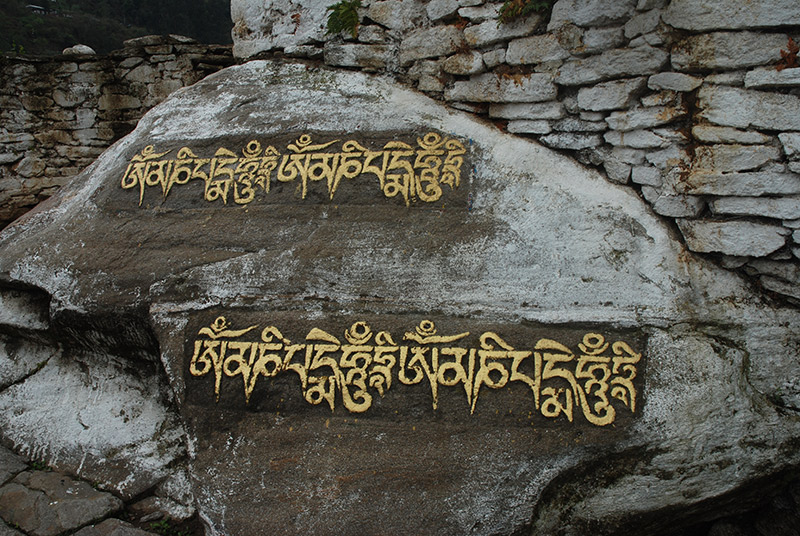 ཨོཾ་མ་ཎི་པ་དྨེ་ཧཱུྃ་ཧྲི ཨོཾ་མ་ཎི་པ་དྨེ་ཧཱུྃ་ཧྲི
ཨོཾ་མ་ཎི་པ་དྨེ་ཧཱུྃ་ཧྲི ཨོཾ་མ་ཎི་པ་དྨེ་ཧཱུྃ་ཧྲི